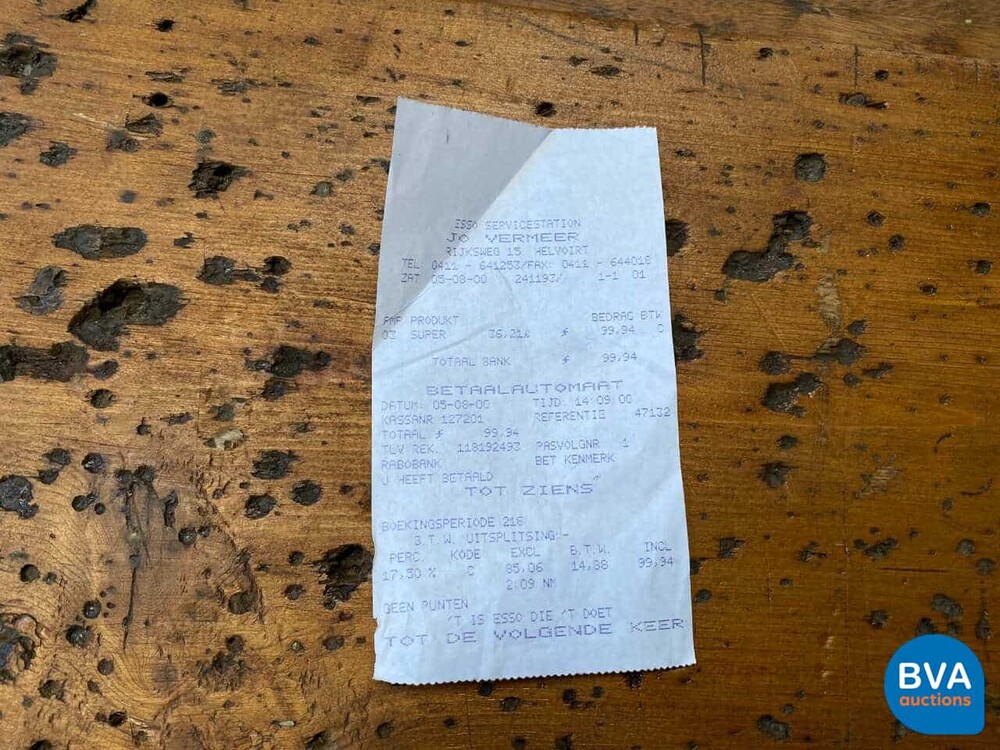 ESSO SERVICESTATION
JO VERMEER
RIJKSWEG 15 HELVOIRT
TEL. 0411 - 641253/FAX: 0411 - 644018
ZAT 05-08-00 241193/ 1-1 01
PMP PRODUKT BEDRAG BTW
03 SUPER 36,21ℓ ƒ 99,94 C
TOTAAL BANK ƒ 99,94
BETAALAUTOMAAT
DATUM: 05-08-00 TIJD: 14:09:00
KASSANR 127201 REFERENTIE 47132
TOTAAL ƒ 99,94
TLV REK. 118192493 PASVOLGNR 1
RABOBANK BET KENMERK
U HEEFT BETAALD
TOT ZIENS
BOEKINGSPERIODE 218
B.T.W. UITSPLITSING:-
PERC. KODE EXCL B.T.W. INCL
17,50 % C 85,06 14,88 99,94
2:09 NM
GEEN PUNTEN
'T IS ESSO DIE 'T DOET
TOT DE VOLGENDE KEER
BVA
auctions